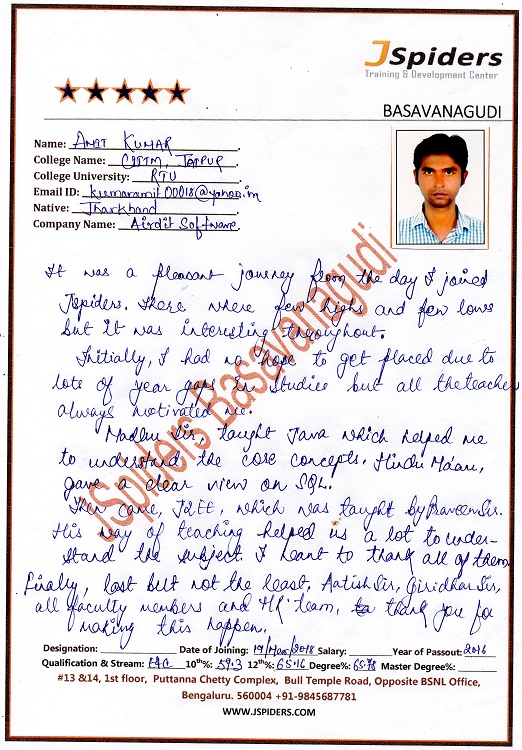 JSpiders
Training & Development Center
BASAVANAGUDI
Name: AMIT KUMAR
College Name: CITM, JAIPUR
College University: RTU
Email ID: kumaramit00018@yahoo.in
Native: Jharkhand
Company Name: Airdit Software
It was a pleasant journey from the day I joined
Jspiders. There where few highs and few lows
but it was interesting throughout.
Initially, I had no hope to get placed due to
lots of year gaps in studies but all the teacher
always motivated me.
Madhu Sir, taught Java which helped me
to understand the core concepts. Hindu Ma'am,
gave a clear view on SQL.
Then came, J2EE, which was taught by Praveen Sir.
His way of teaching helped us a lot to under-
stand the subject. I want to thank all of them.
Finally, last but not the least, Aatish Sir, Giridhar Sir,
all faculty members and HR team, thank you for
making this happen.
JSpiders Basavanagudi
Designation: Date of Joining: 19/Mar/2018 Salary: Year of Passout: 2016
Qualification & Stream: ECE 10th%: 59.3 12th%: 65.16 Degree%: 65.78 Master Degree%:
#13 &14, 1st floor, Puttanna Chetty Complex, Bull Temple Road, Opposite BSNL Office,
Bengaluru. 560004 +91-9845687781
WWW.JSPIDERS.COM